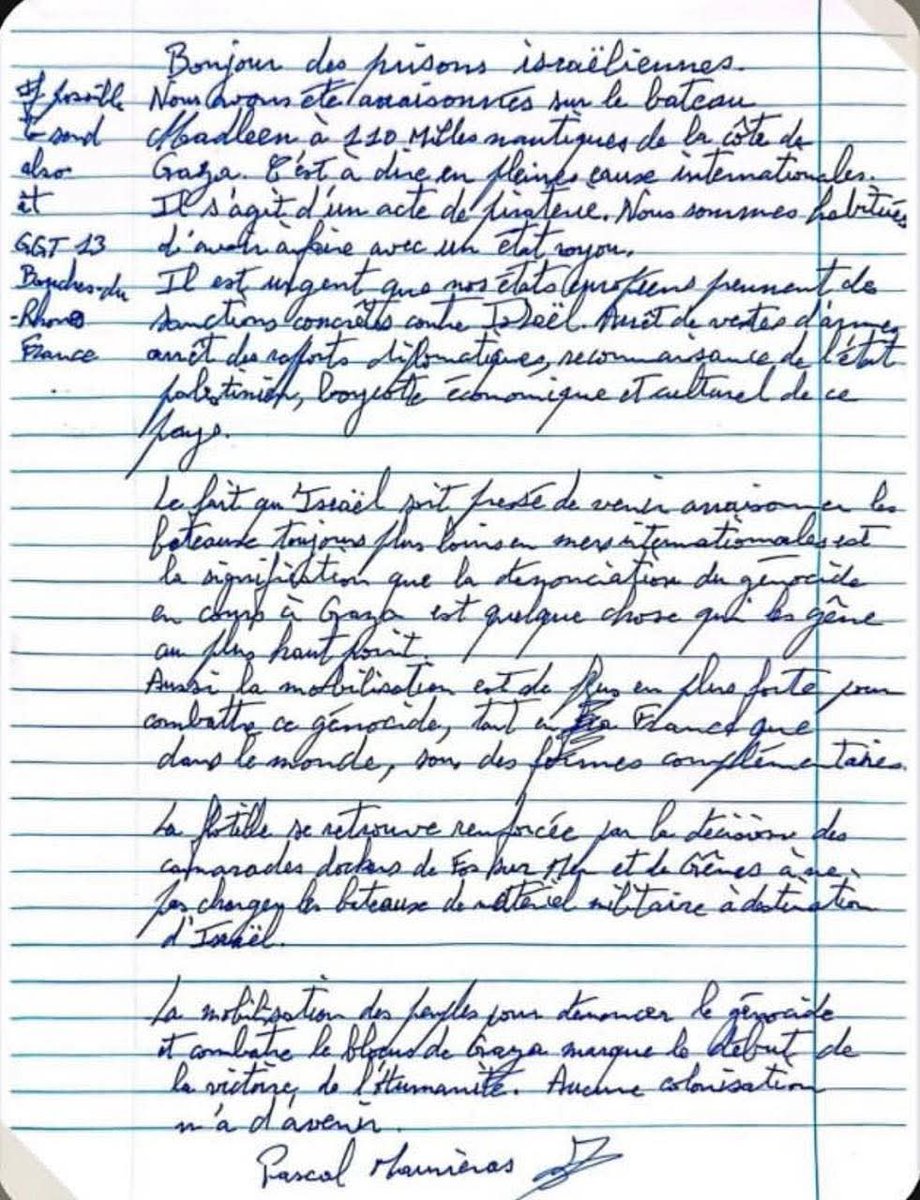 Bonjour des prisons israëliennes.
If possible
to send
also
at
GGT 13
Bouches-du
-Rhone
France
Nous avons été arraisonnés sur le bateau
Madleen à 110 Milles nautiques de la côte de
Gaza. C'est à dire en pleines eaux internationales.
Il s'agit d'un acte de piraterie. Nous sommes habitués
d'avoir à faire avec un état voyou.
Il est urgent que nos états européens prennent de
sanctions concrêtes contre Israël. Arrêt de ventes d'armes
arrêt des raports diplomatiques, reconnaissance de l'état
palestinien, boycotte économique et culturel de ce
pays.
Le fait qu'Israël soit pressé de venir arraisonner les
bateaux toujours plus loins en mers internationales est
la signification que la dénonciation du génocide
en cours à Gaza est quelque chose qui les gêne
au plus haut point.
Aussi la mobilisation est de plus en plus forte pour
combattre ce génocide, tant en France que
dans le monde, sous des formes complémentaires.
La flotille se retrouve renforcée par la décision des
camarades dockers de Fos sur Mer et de Gênes à ne
pas charger les bateaux de matériel militaire à destination
d'Israël.
La mobilisation des peuples pour dénoncer le génocide
et combatre le blocus de Gaza marque le début de
la victoire, de l'Humanité. Aucune colonisation
n'a d'avenir.
Pascal Maurieras